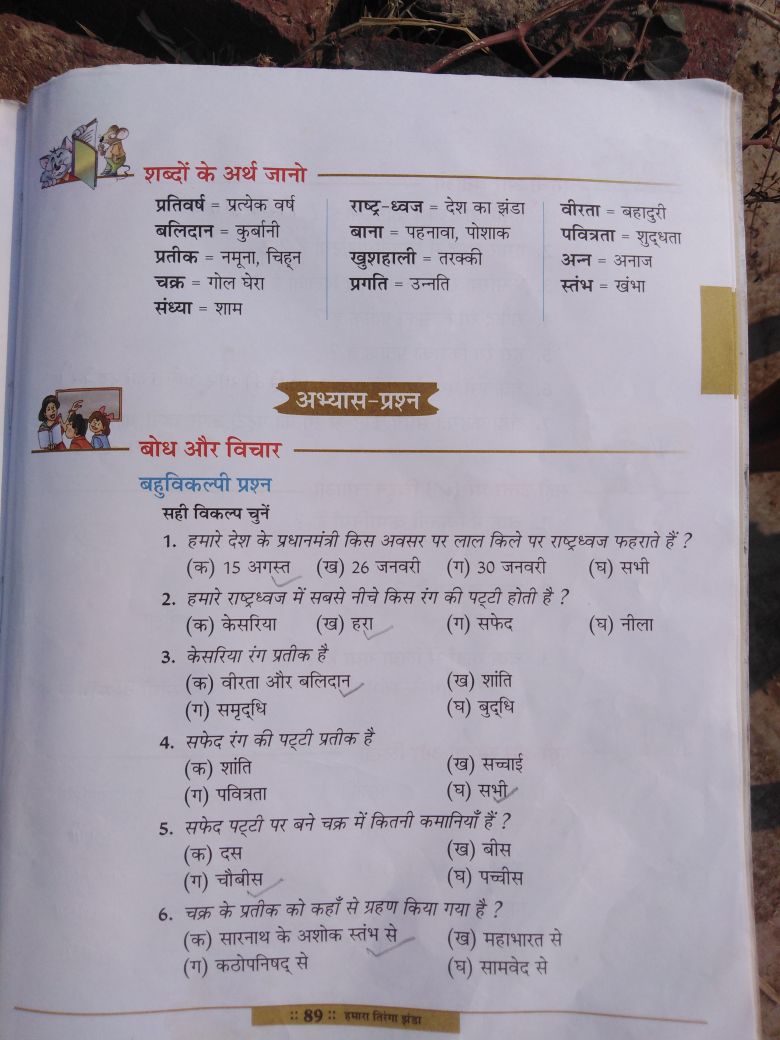 शब्दों के अर्थ जानो
प्रतिवर्ष = प्रत्येक वर्ष
बलिदान = कुर्बानी
प्रतीक = नमूना, चिह्न
चक्र = गोल घेरा
संध्या = शाम
राष्ट्र-ध्वज = देश का झंडा
बाना = पहनावा, पोशाक
खुशहाली = तरक्की
प्रगति = उन्नति
वीरता = बहादुरी
पवित्रता = शुद्धता
अन्न = अनाज
स्तंभ = खंभा
अभ्यास-प्रश्न
बोध और विचार
बहुविकल्पी प्रश्न
सही विकल्प चुनें
1. हमारे देश के प्रधानमंत्री किस अवसर पर लाल किले पर राष्ट्रध्वज फहराते हैं ?
(क) 15 अगस्त (ख) 26 जनवरी (ग) 30 जनवरी (घ) सभी
2. हमारे राष्ट्रध्वज में सबसे नीचे किस रंग की पट्टी होती है ?
(क) केसरिया (ख) हरा (ग) सफेद (घ) नीला
3. केसरिया रंग प्रतीक है
(क) वीरता और बलिदान (ख) शांति
(ग) समृद्धि (घ) बुद्धि
4. सफेद रंग की पट्टी प्रतीक है
(क) शांति (ख) सच्चाई
(ग) पवित्रता (घ) सभी
5. सफेद पट्टी पर बने चक्र में कितनी कमानियाँ हैं ?
(क) दस (ख) बीस
(ग) चौबीस (घ) पच्चीस
6. चक्र के प्रतीक को कहाँ से ग्रहण किया गया है ?
(क) सारनाथ के अशोक स्तंभ से (ख) महाभारत से
(ग) कठोपनिषद् से (घ) सामवेद से
:: 89 :: हमारा तिरंगा झंडा